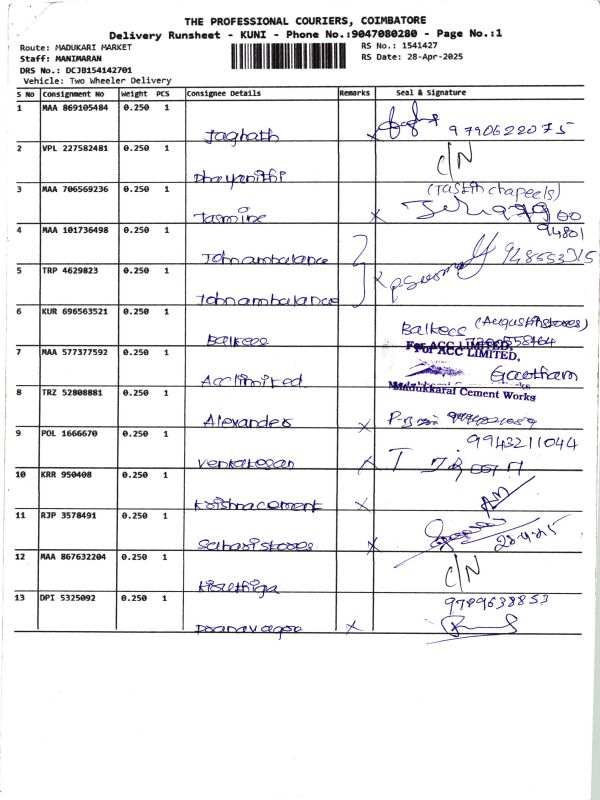 THE PROFESSIONAL COURIERS, COIMBATORE
Delivery Runsheet - KUNI - Phone No.:9047080280 - Page No.:1
Route: MADUKARI MARKET
RS No.: 1541427
Staff: MANIMARAN
RS Date: 28-Apr-2025
DRS No.: DCJB154142701
Vehicle: Two Wheeler Delivery
S No Consignment No Weight PCS Consignee Details Remarks Seal & Signature
1 MAA 869105484 0.250 1
Jaghath x 9790622075
2 VPL 227582481 0.250 1 C/N
Dhayanithi
3 MAA 706569236 0.250 1
Jasmine x
4 MAA 101736498 0.250 1 94801
Johnambulance
5 TRP 4629823 0.250 1
Johnambulance
6 KUR 696563521 0.250 1
Balkees
7 MAA 577377592 0.250 1 For ACC LIMITED,
Acc limited Gautham
Madukkarai Cement Works
8 TRZ 52808881 0.250 1
Alexander x
9 POL 1666670 0.250 1 9943211044
Venkatesan x
10 KRR 950408 0.250 1
Krishna cement x
11 RJP 3578491 0.250 1
x 28-4-25
12 MAA 867632204 0.250 1 C/N
13 DPI 5325092 0.250 1 9789638853
x